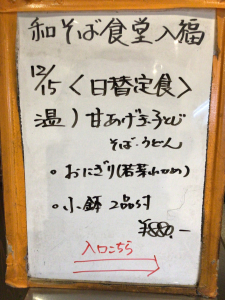 和そば食堂入福
12/15 〈日替定食〉
温）甘あげ玉子とじ
そば・うどん
・おにぎり(若芽小かめ)
・小鉢 2品付
¥880.-
入口こちら